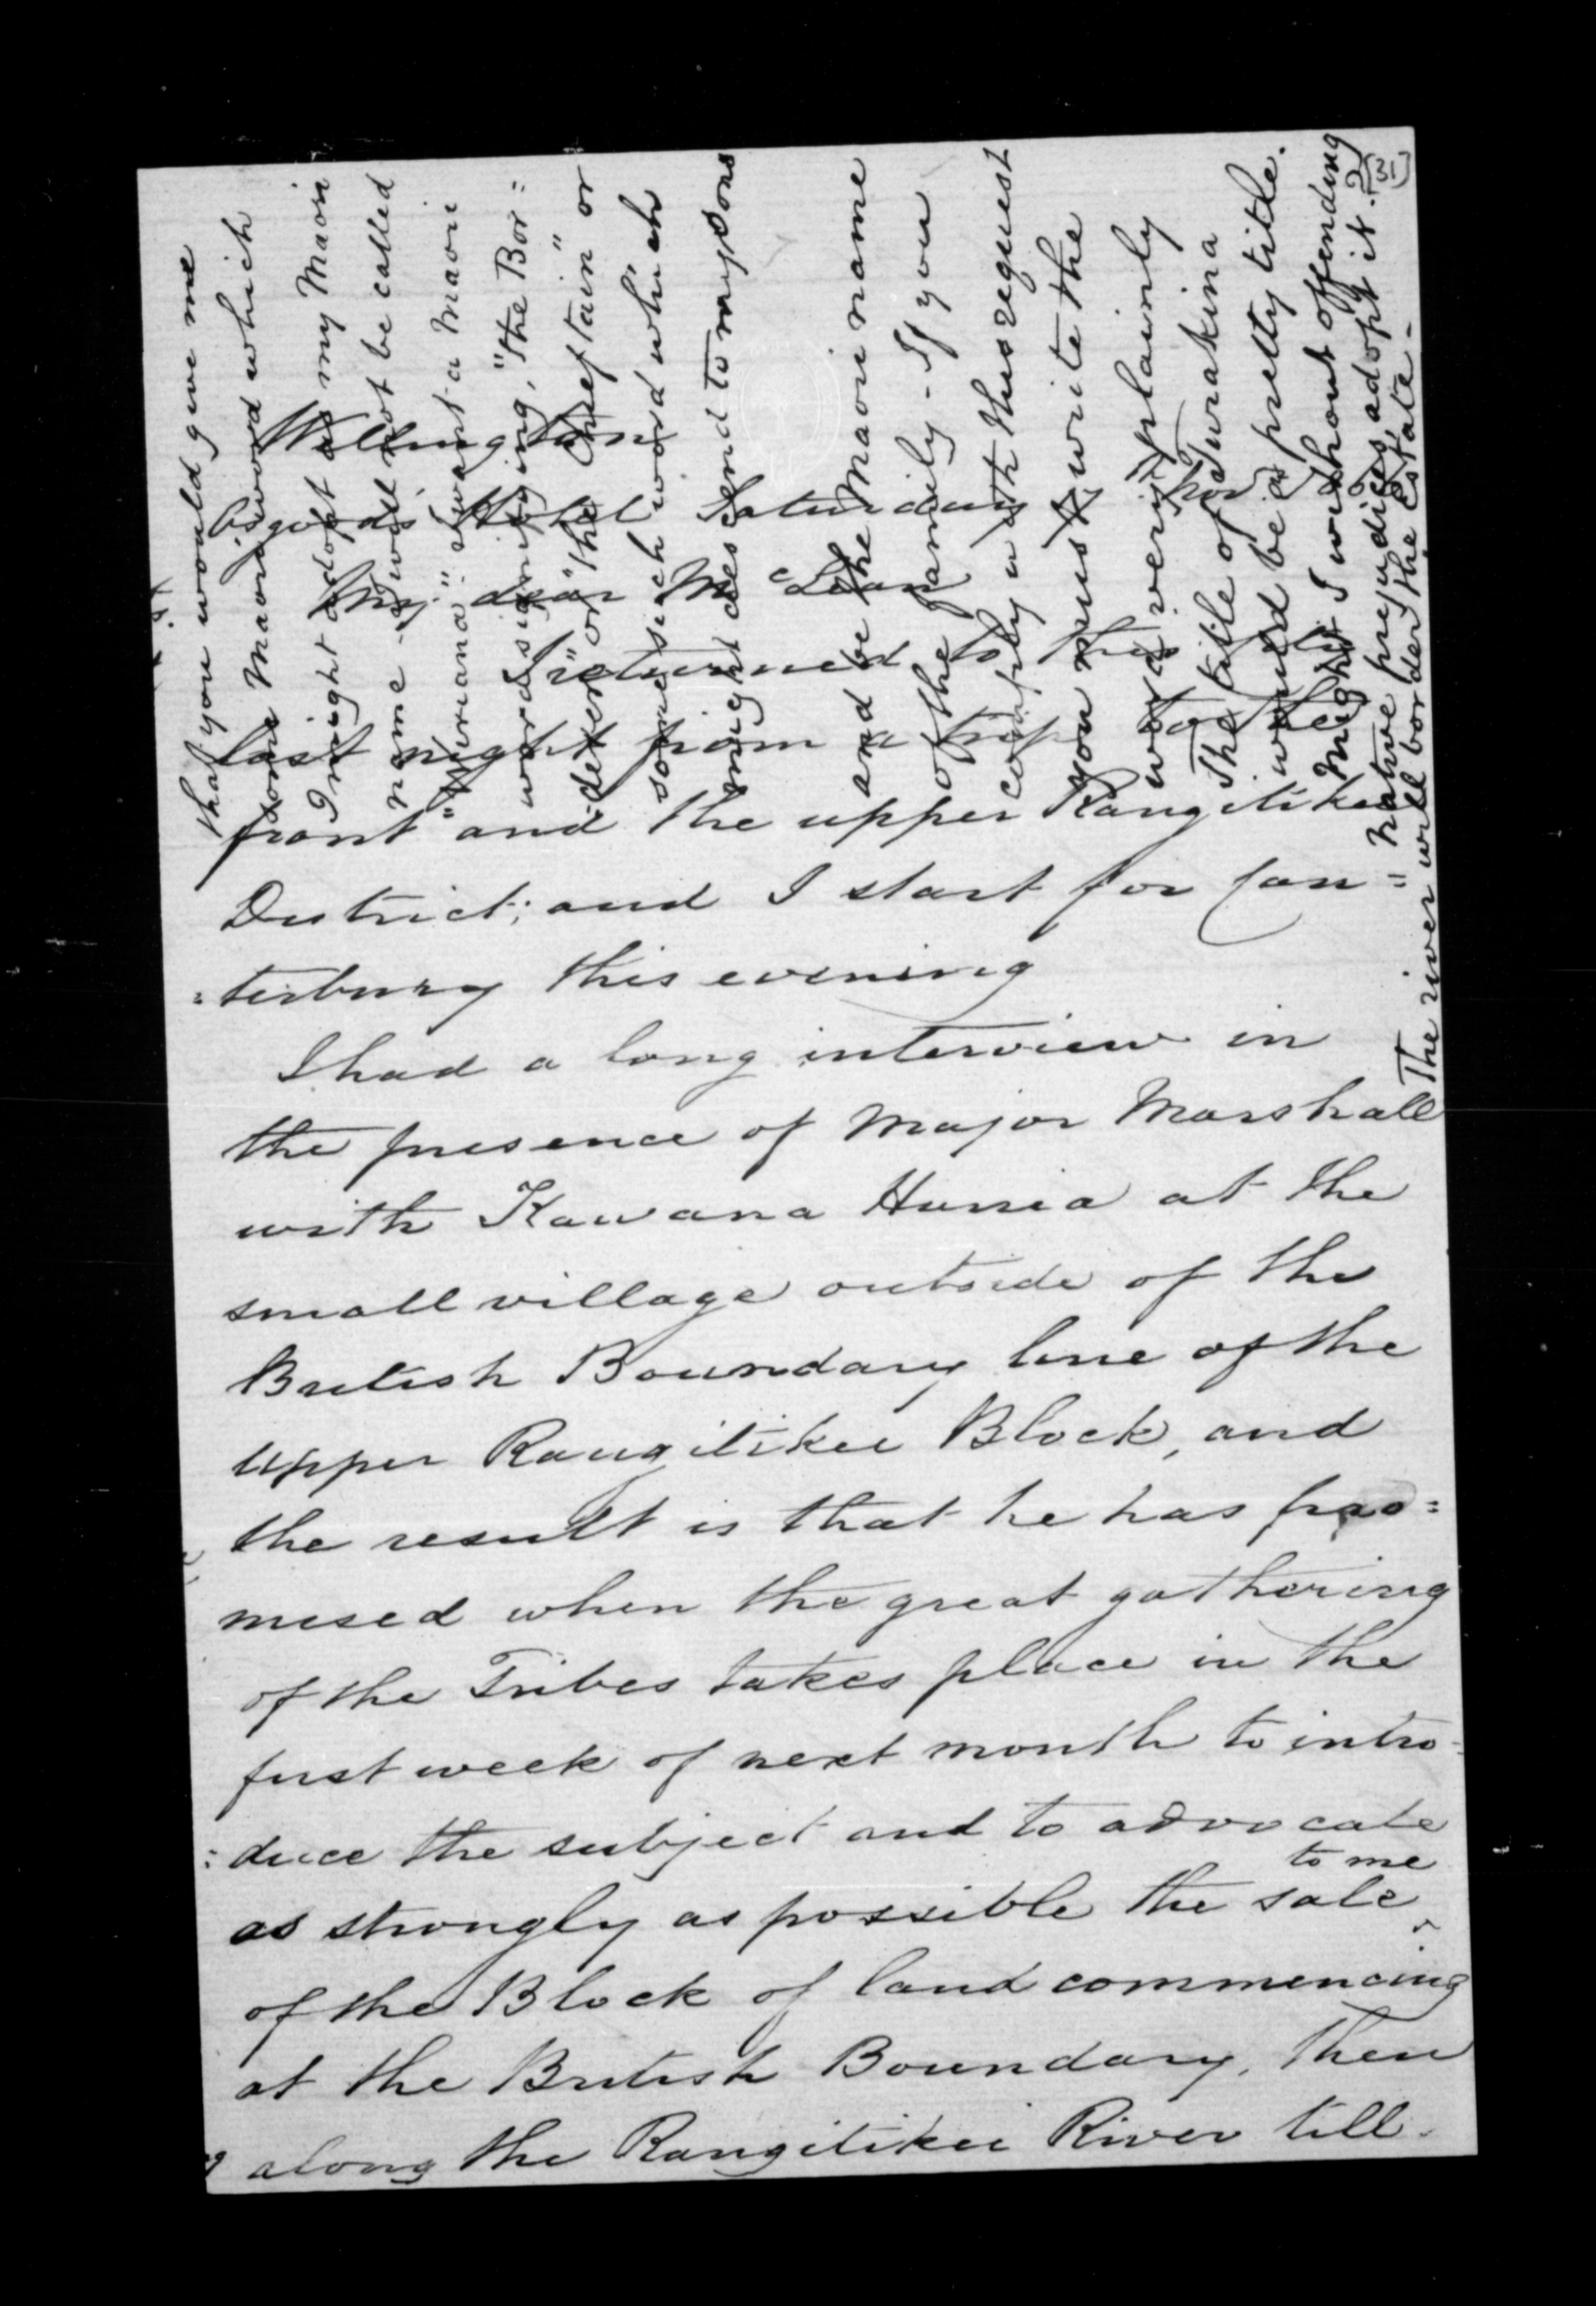 Wellington
Osgood's Hotel Saturday Nov
My dear McLean
I returned to this
last night from a trip to the
front and the upper Rangitikei
District; and I start for Can=
=terbury this evening
I had a long interview in
the presence of Major Marshall
with Kawana Hunia at the
small village outside of the
British Boundary line of the
upper Rangitikei Block, and
the result is that he has pro=
mised when the great gathering
of the Tribes takes place in the
first week of next month to intro-
:duce the subject and to advocate
to me
as strongly as possible the sale
of the Block of land commencing
at the British Boundary, then
along the Rangitikei River till
that you would give me
some Maori word which
I might adopt as my Maori
name - I will not be called
I want a Maori
word signifying, "the Bor=
=derer" or "the Chieftain" or
some such word which
might descend to my sons
and be the Maori name
of the family - If you
comply with this request
you must write the
word very plainly
The title of Turakina
would be a pretty title.
Might I without offending
native prejudices adopt it?
The river will border the Estate -
[31]